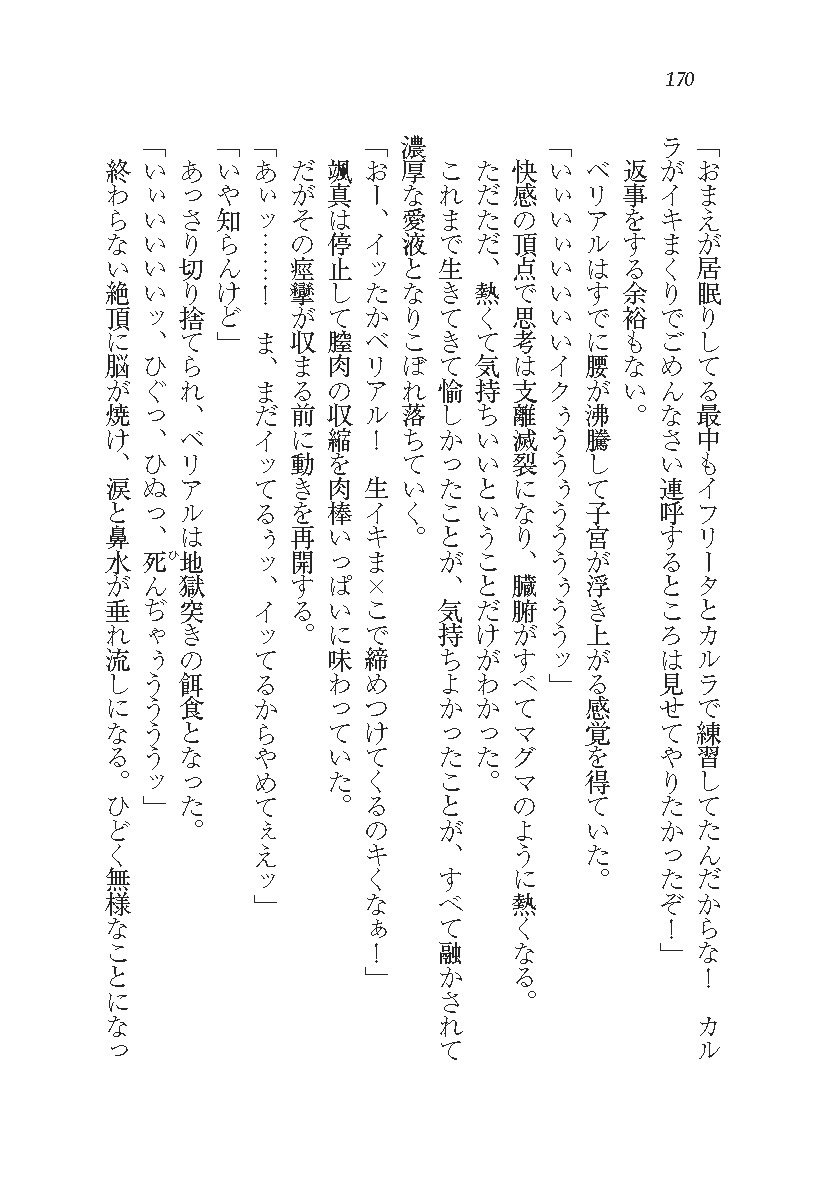 170
「おまえが居眠りしてる最中もイフリータとカルラで練習してたんだからな！　カル
ラがイキまくりでごめんなさい連呼するところは見せてやりたかったぞ！」
返事をする余裕もない。
ベリアルはすでに腰が沸騰して子宮が浮き上がる感覚を得ていた。
「いぃいぃいいいいイクぅううぅうううぅううッ」
快感の頂点で思考は支離滅裂になり、臓腑がすべてマグマのように熱くなる。
ただただ、熱くて気持ちいいということだけがわかった。
これまで生きてきて愉しかったことが、気持ちよかったことが、すべて融かされて
濃厚な愛液となりこぼれ落ちていく。
「おー、イッたかベリアル！　生イキま×こで締めつけてくるのキくなぁ！」
颯真は停止して膣肉の収縮を肉棒いっぱいに味わっていた。
だがその痙攣が収まる前に動きを再開する。
「あぃッ……！　ま、まだイッてるぅッ、イッてるからやめてぇえッ」
「いや知らんけど」
あっさり切り捨てられ、ベリアルは地獄突きの餌食となった。
「いぃいいいいッ、ひぐっ、ひぬっ、死ひんぢゃぅううううッ」
終わらない絶頂に脳が焼け、涙と鼻水が垂れ流しになる。ひどく無様なことになっ